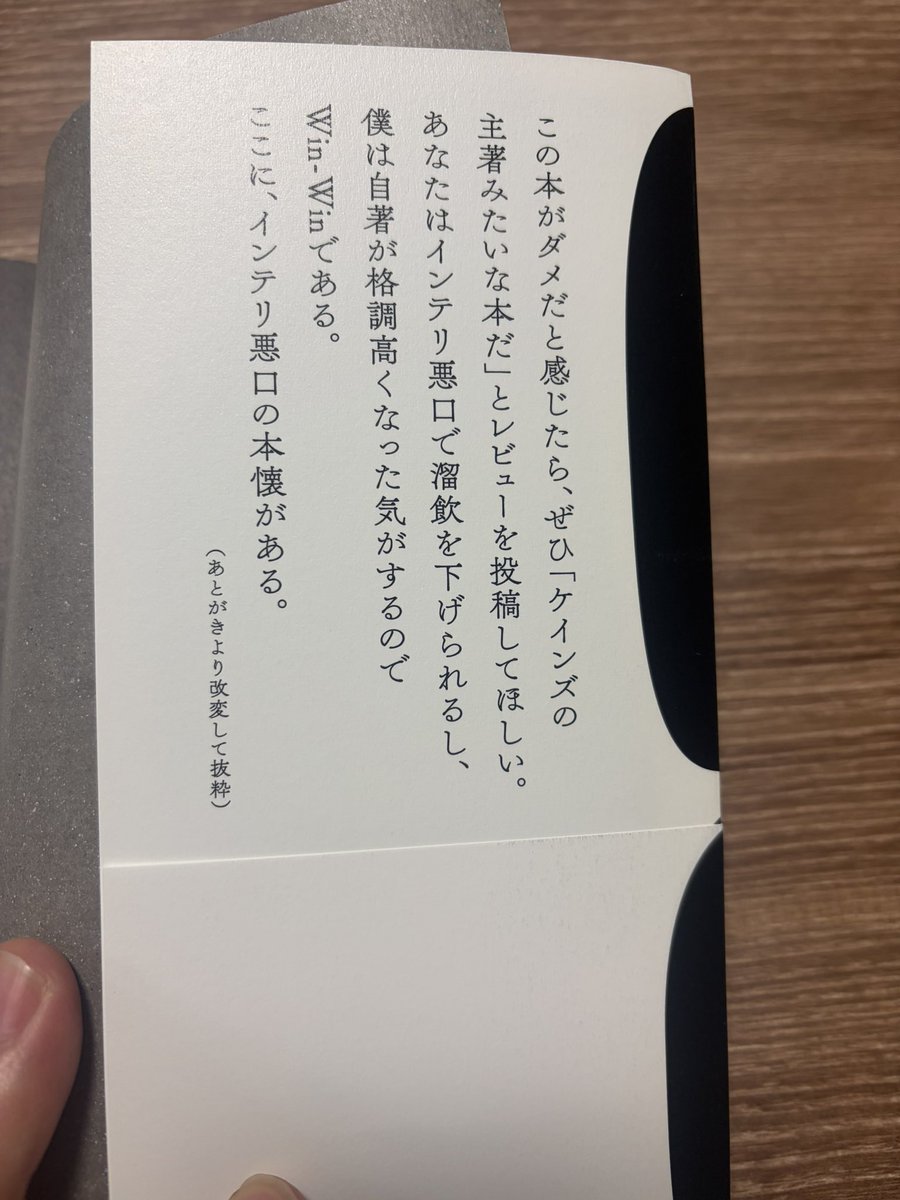 この本がダメだと感じたら、ぜひ「ケインズの
主著みたいな本だ」とレビューを投稿してほしい。
あなたはインテリ悪口で溜飲を下げられるし、
僕は自著が格調高くなった気がするので
Win-Winである。
ここに、インテリ悪口の本懐がある。
（あとがきより改変して抜粋）